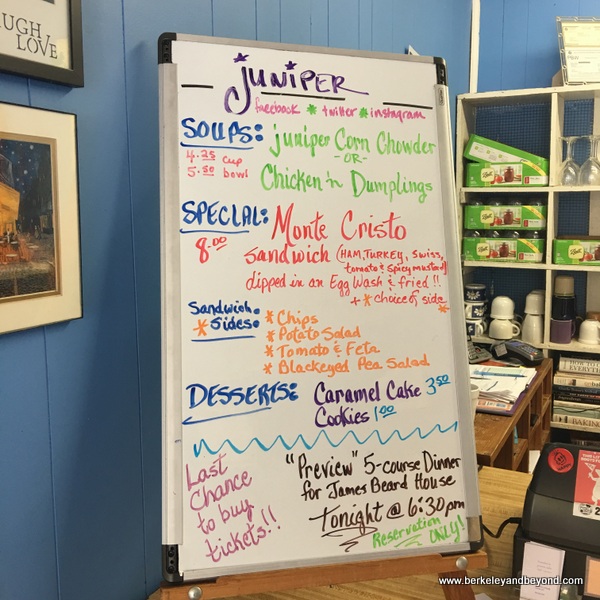 UGH
LOVE
JUNIPER
facebook * twitter * instagram
SOUPS: juniper Corn Chowder
4.25 cup
-OR-
5.50 bowl
Chicken 'n Dumplings
SPECIAL: Monte Cristo
8.00
Sandwich (HAM, TURKEY, SWISS,
tomato & spicy mustard)
dipped in an Egg Wash & fried!!
+ * choice of side *
Sandwich
* Sides:
* Chips
* Potato Salad
* Tomato & Feta
* Blackeyed Pea Salad
DESSERTS: Caramel Cake 3.50
Cookies 1.00
Last
Chance
to buy
tickets!!
"Preview" 5-course Dinner
for James Beard House
Tonight @ 6:30pm
Reservation
ONLY!
HOW TO COOK
EVERYTHING
BAKING
www.berkeleyandbeyond.com